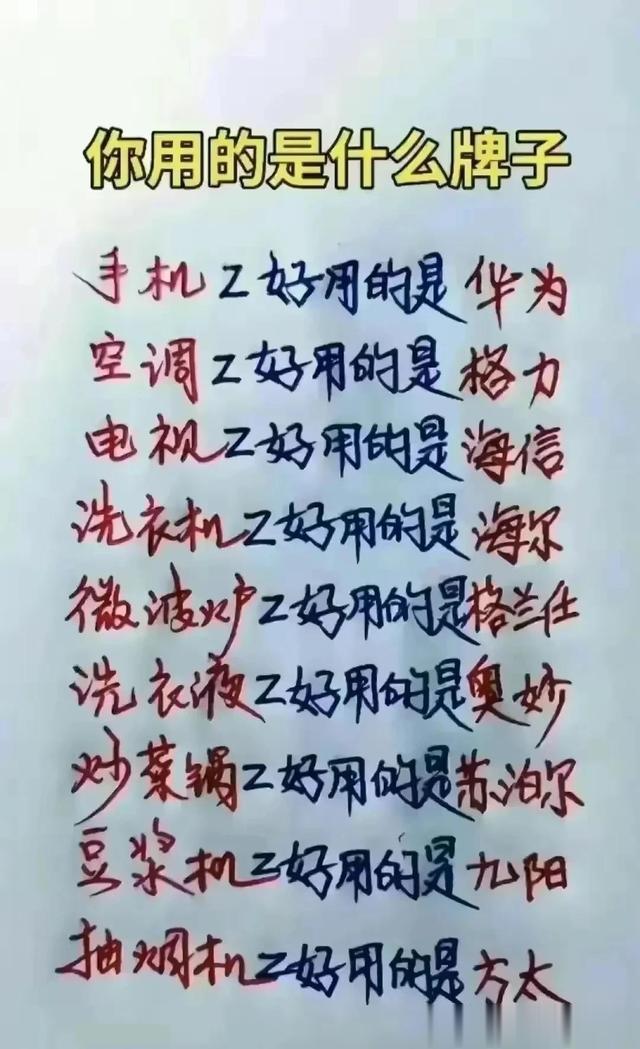 你用的是什么牌子
手机Z好用的是华为
空调Z好用的是格力
电视Z好用的是海信
洗衣机Z好用的是海尔
微波炉Z好用的是格兰仕
洗衣液Z好用的是奥妙
炒菜锅Z好用的是苏泊尔
豆浆机Z好用的是九阳
抽烟机Z好用的是方太